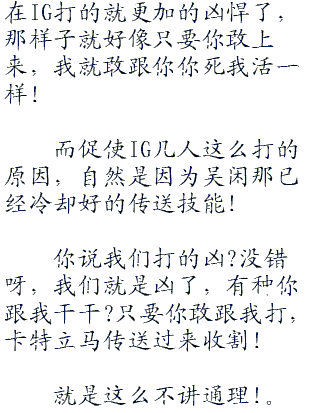 在IG打的就更加的凶悍了，
那样子就好像只要你敢上
来，我就敢跟你你死我活一
样！
而促使IG几人这么打的
原因，自然是因为吴闲那已
经冷却好的传送技能！
你说我们打的凶？没错
呀，我们就是凶了，有种你
跟我干干？只要你敢跟我打，
卡特立马传送过来收割！
就是这么不讲通理！。